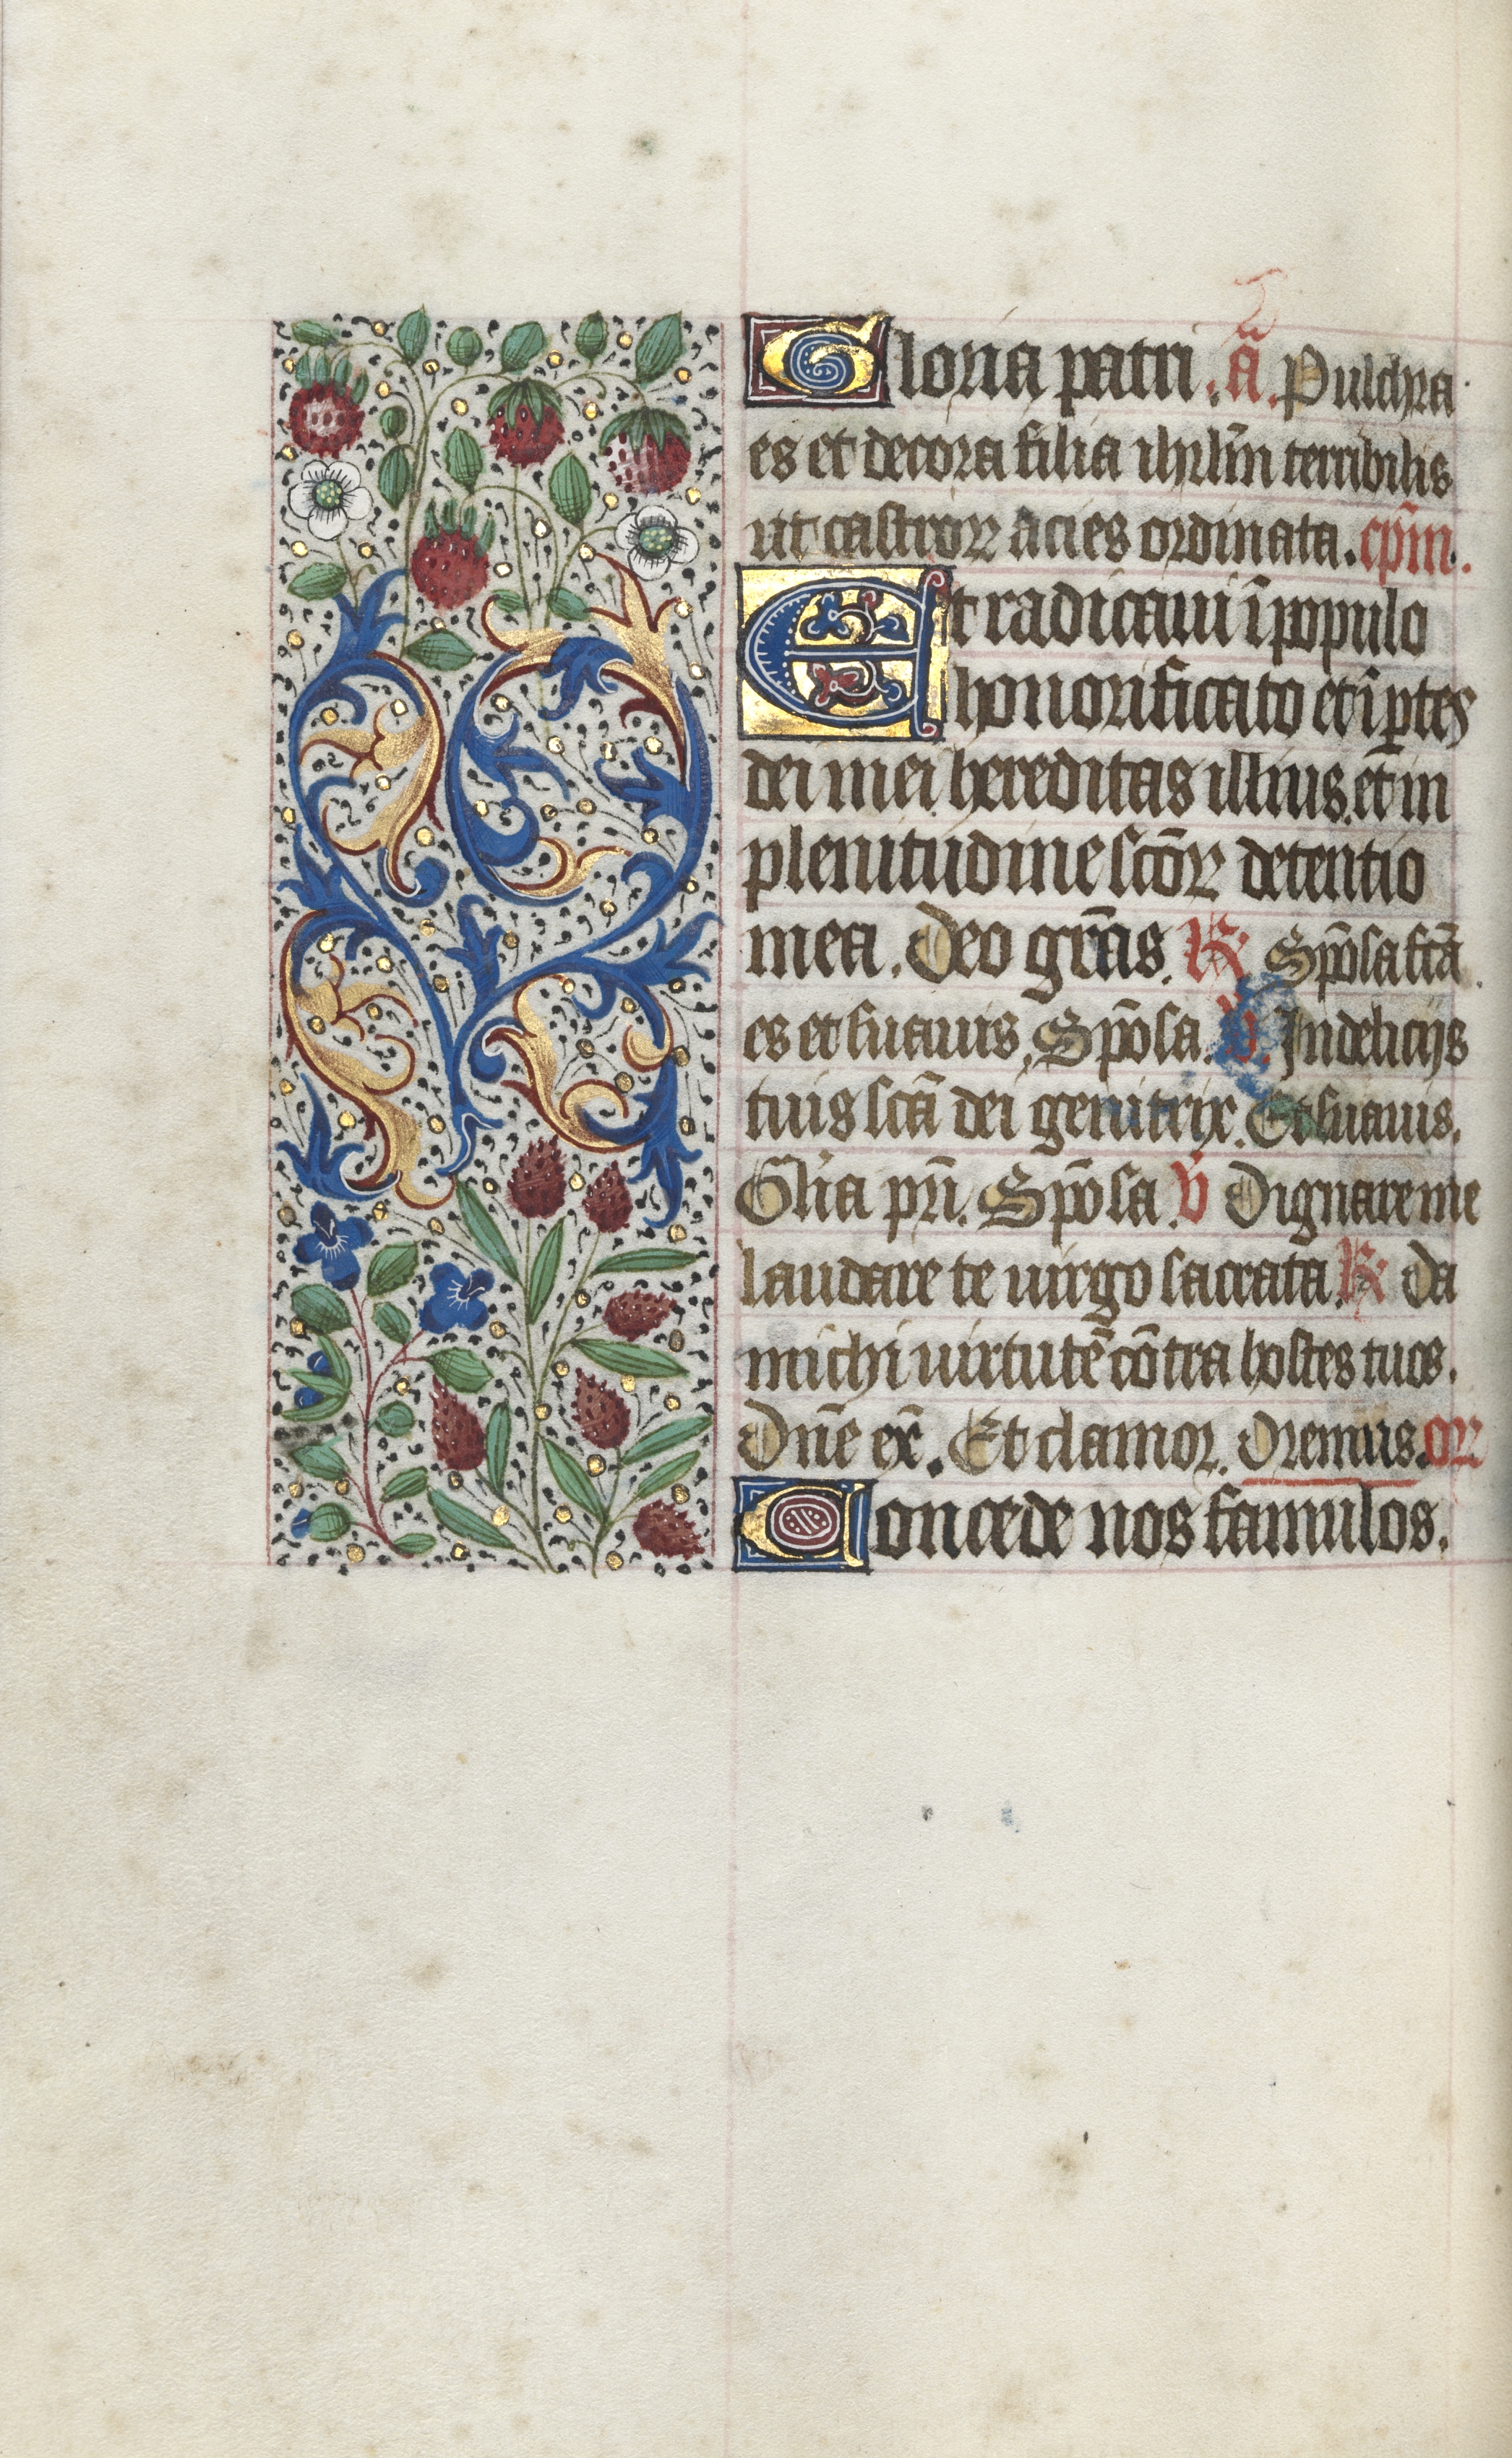 Gloria patri. ã. Pulchra
es et decora filia ihrlm̃ terribilis
ut castroꝝ acies ordinata. cpĩm.
Et radicaui ĩ populo
honorificato et ĩ ꝑtes
dei mei hereditas illius. et in
plenitudine sctõꝝ detentio
mea. Deo grãs. ℟ Spõsa fctã
es et suauis, Spõsa. ℣. In delicijs
tuis sctã dei genitrix. Et suauis.
Glĩa prĩ. Spõsa. ℣ Dignare me
laudare te uirgo sacrata. ℟ Da
michi uirtutẽ cõtra hostes tuos.
Dñe ex̃. Et clamor. Oremus. oꝝ
Concede nos famulos.